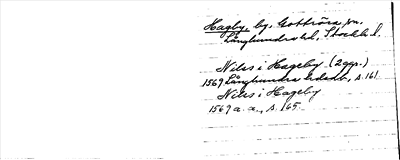 Hagby, by, Gottröra sn.
Långhundra hd, Stockh. l.
Nils i Hageby (2 ggr.)
1569 Långhundra hd, s. 161
Nils i Hageby
1569 a. a., s. 165.